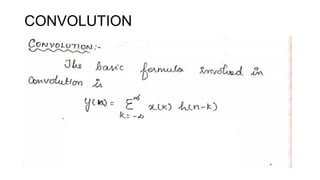 CONVOLUTION
CONVOLUTION:-
The basic formula involved in
Convolution is
y(n) = Σ^∞ x(k) h(n-k)
k = -∞